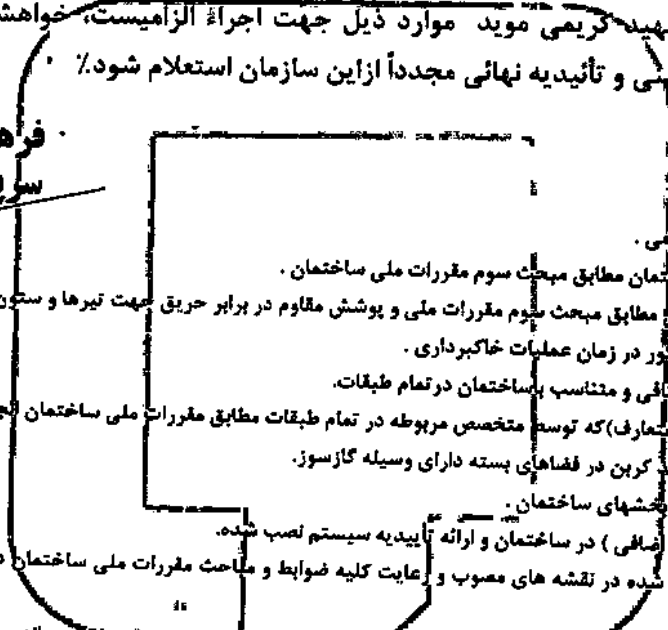 شهید کریمی موید موارد ذیل جهت اجراء الزامیست، خواهش
و تأئیدیه نهائی مجدداً ازاین سازمان استعلام شود٪
مطابق مبحث سوم مقررات ملی ساختمان .
مطابق مبحث سوم مقررات ملی و پوشش مقاوم در برابر حریق جهت تیرها و ستون
در زمان عملیات خاکبرداری .
و متناسب باساختمان درتمام طبقات.
که توسط متخصص مربوطه در تمام طبقات مطابق مقررات ملی ساختمان
کربن در فضاهای بسته دارای وسیله گازسوز.
ساختمان .
) در ساختمان و ارائه تاییدیه سیستم نصب شده.
شده در نقشه های مصوب و رعایت کلیه ضوابط و مباحث مقررات ملی ساختمان